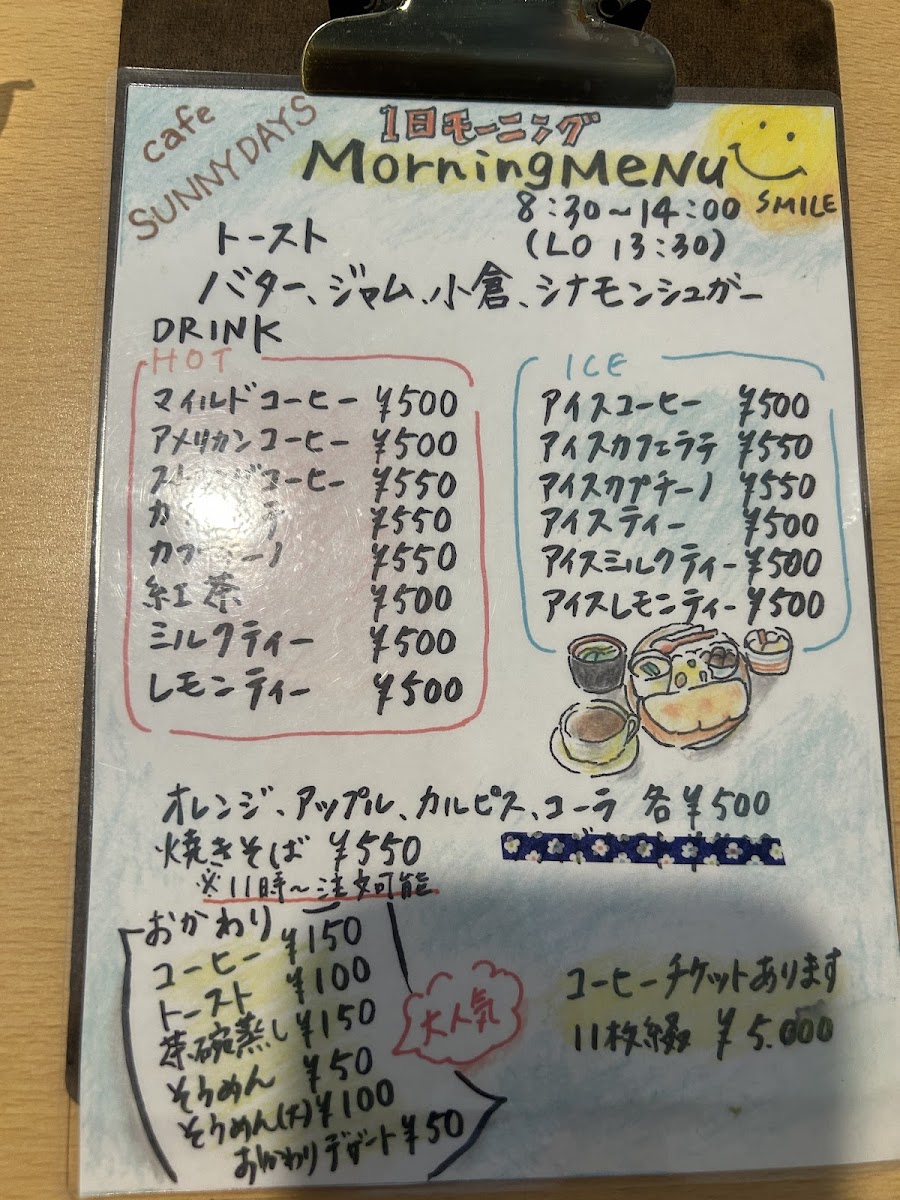 cafe
SUNNY DAYS
1日モーニング
Morning MeNU
SMILE
8:30~14:00
(LO 13:30)
トースト
バター、ジャム、小倉、シナモンシュガー
DRINK
HOT
マイルドコーヒー ¥500
アメリカンコーヒー ¥500
コーヒー ¥550
カ ¥550
カプチーノ ¥550
紅茶 ¥500
ミルクティー ¥500
レモンティー ¥500
ICE
アイスコーヒー ¥500
アイスカフェラテ ¥550
アイスカプチーノ ¥550
アイスティー ¥500
アイスミルクティー ¥500
アイスレモンティー ¥500
オレンジ、アップル、カルピス、コーラ 各¥500
焼きそば ¥550
※11時~注文可能
おかわり
コーヒー ¥150
トースト ¥100
茶碗蒸し ¥150
そうめん ¥50
そうめん(大) ¥100
おかわりデザート ¥50
大人気
コーヒーチケットあります
11枚綴 ¥5.000